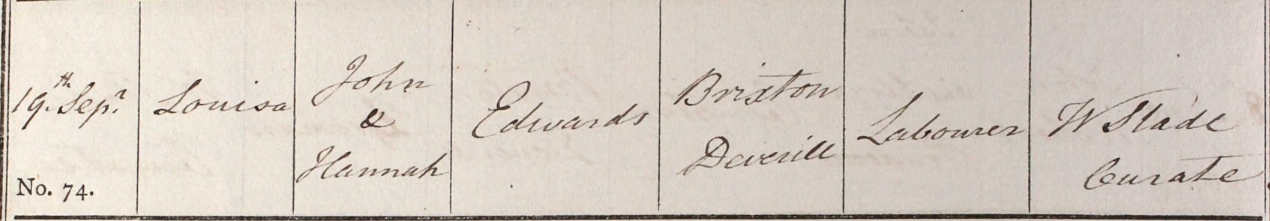 19.th Sepr
No. 74.
Louisa
John
&
Hannah
Edwards
Brixton
Deverill
Labourer
W Slade
Curate